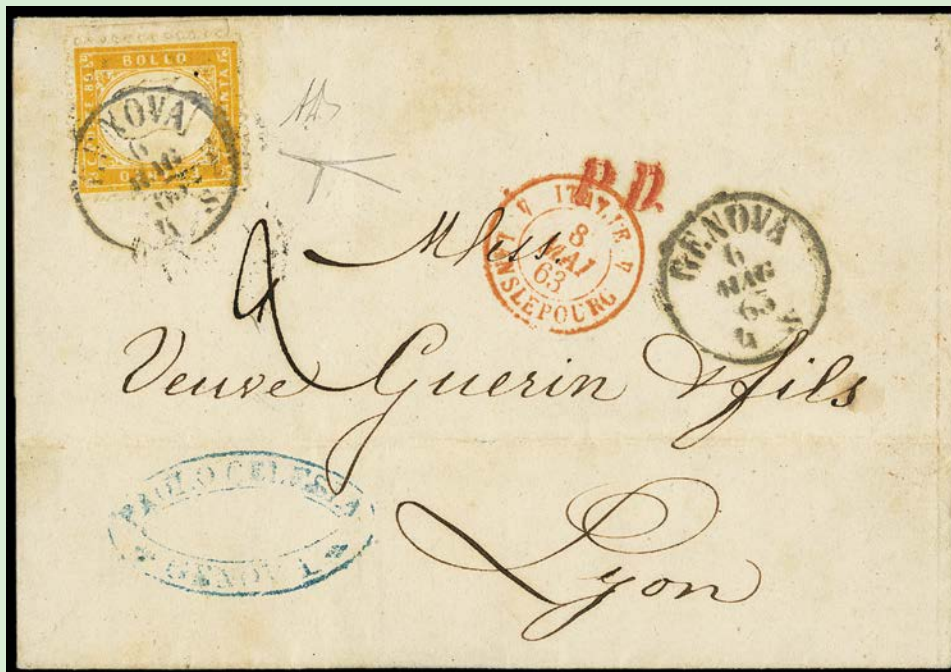 BOLLO
GENOVA
6
MAG
63
4
S
P.D.
V ITALIE V
8
MAI
63
LANSLEBOURG
GENOVA
6
MAG
63
4
S
Mess.
Veuve Guerin & fils
Lyon
PAOLO CELESIA
GENOVA